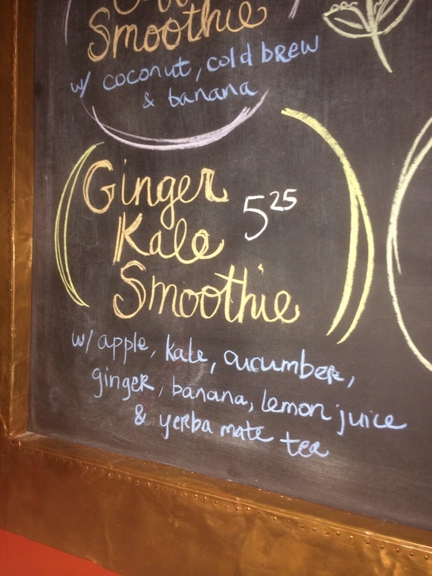 Smoothie
w/ coconut, cold brew
& banana
Ginger
Kale
5.25
Smoothie
w/ apple, kale, cucumber,
ginger, banana, lemon juice
& yerba mate tea